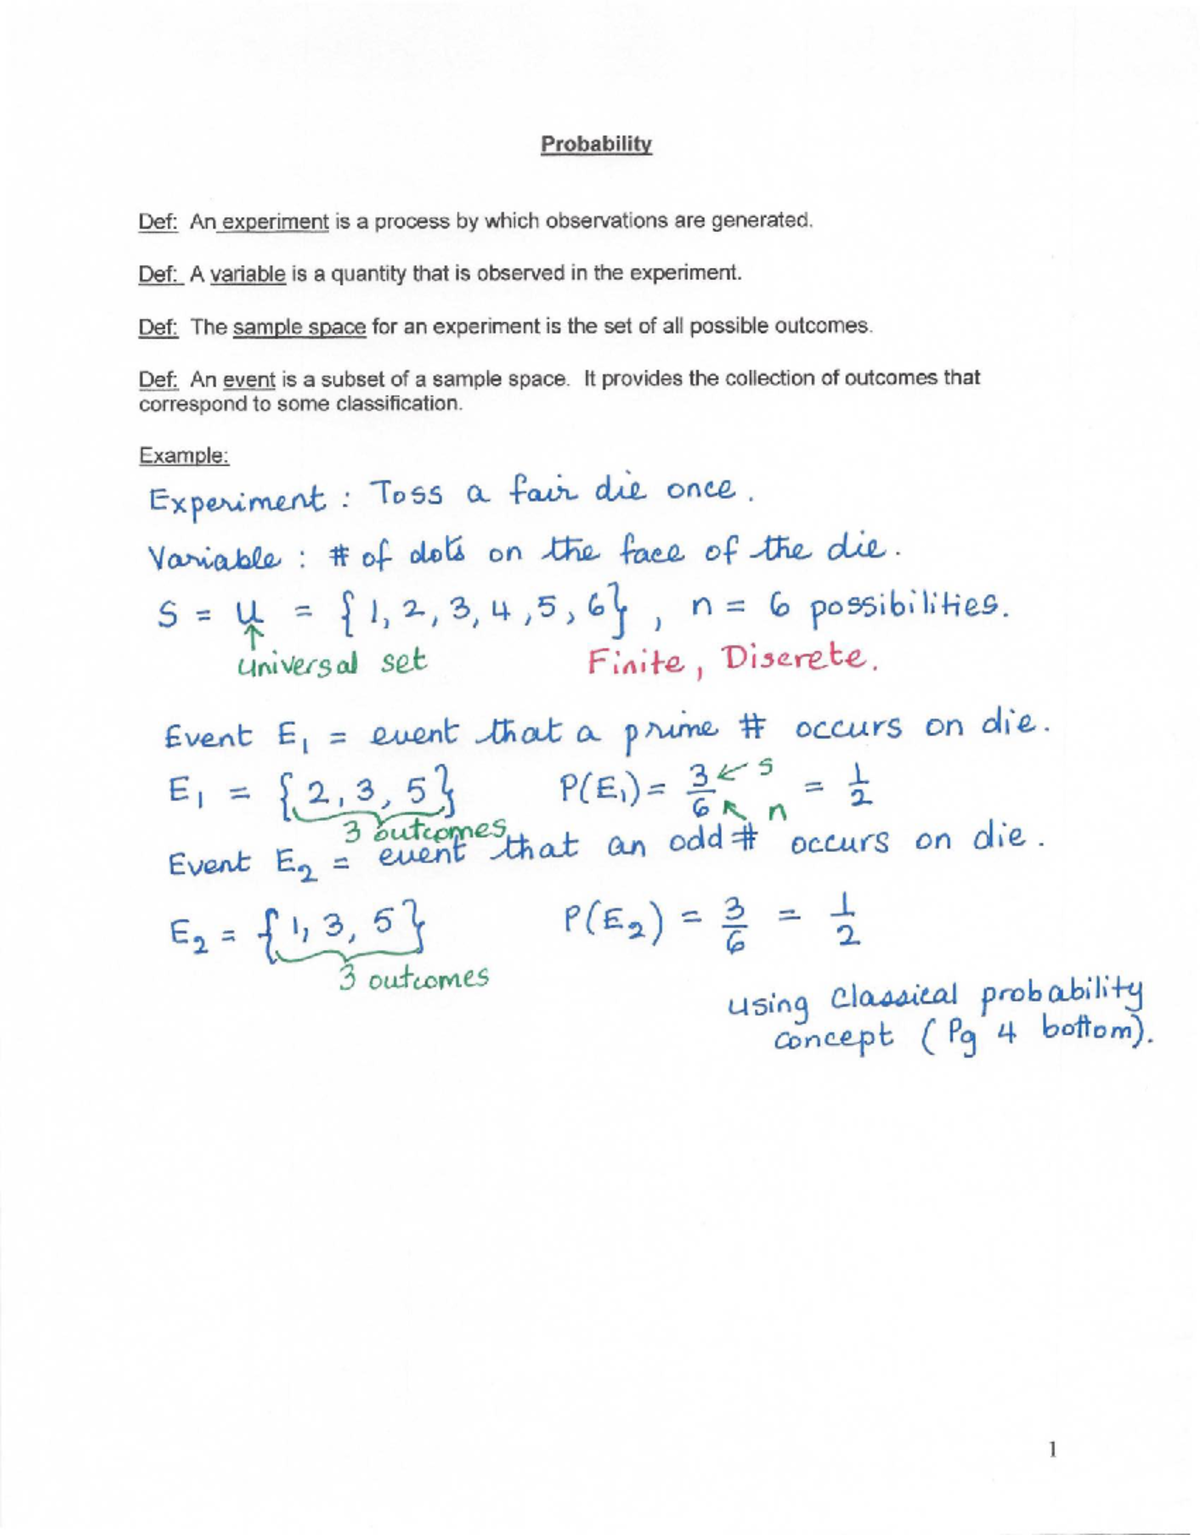 Probability
Def: An experiment is a process by which observations are generated.
Def: A variable is a quantity that is observed in the experiment.
Def: The sample space for an experiment is the set of all possible outcomes.
Def: An event is a subset of a sample space. It provides the collection of outcomes that
correspond to some classification.
Example:
Experiment : Toss a fair die once.
Variable : # of dots on the face of the die.
S = U = {1, 2, 3, 4, 5, 6}, n = 6 possibilities.
↑
universal set Finite, Discrete.
Event E₁ = event that a prime # occurs on die.
E₁ = {2, 3, 5} P(E₁) = 3/6 ← s ↖ n = 1/2
3 outcomes
Event E₂ = event that an odd # occurs on die.
E₂ = {1, 3, 5} P(E₂) = 3/6 = 1/2
3 outcomes
using classical probability
concept (Pg 4 bottom).
1